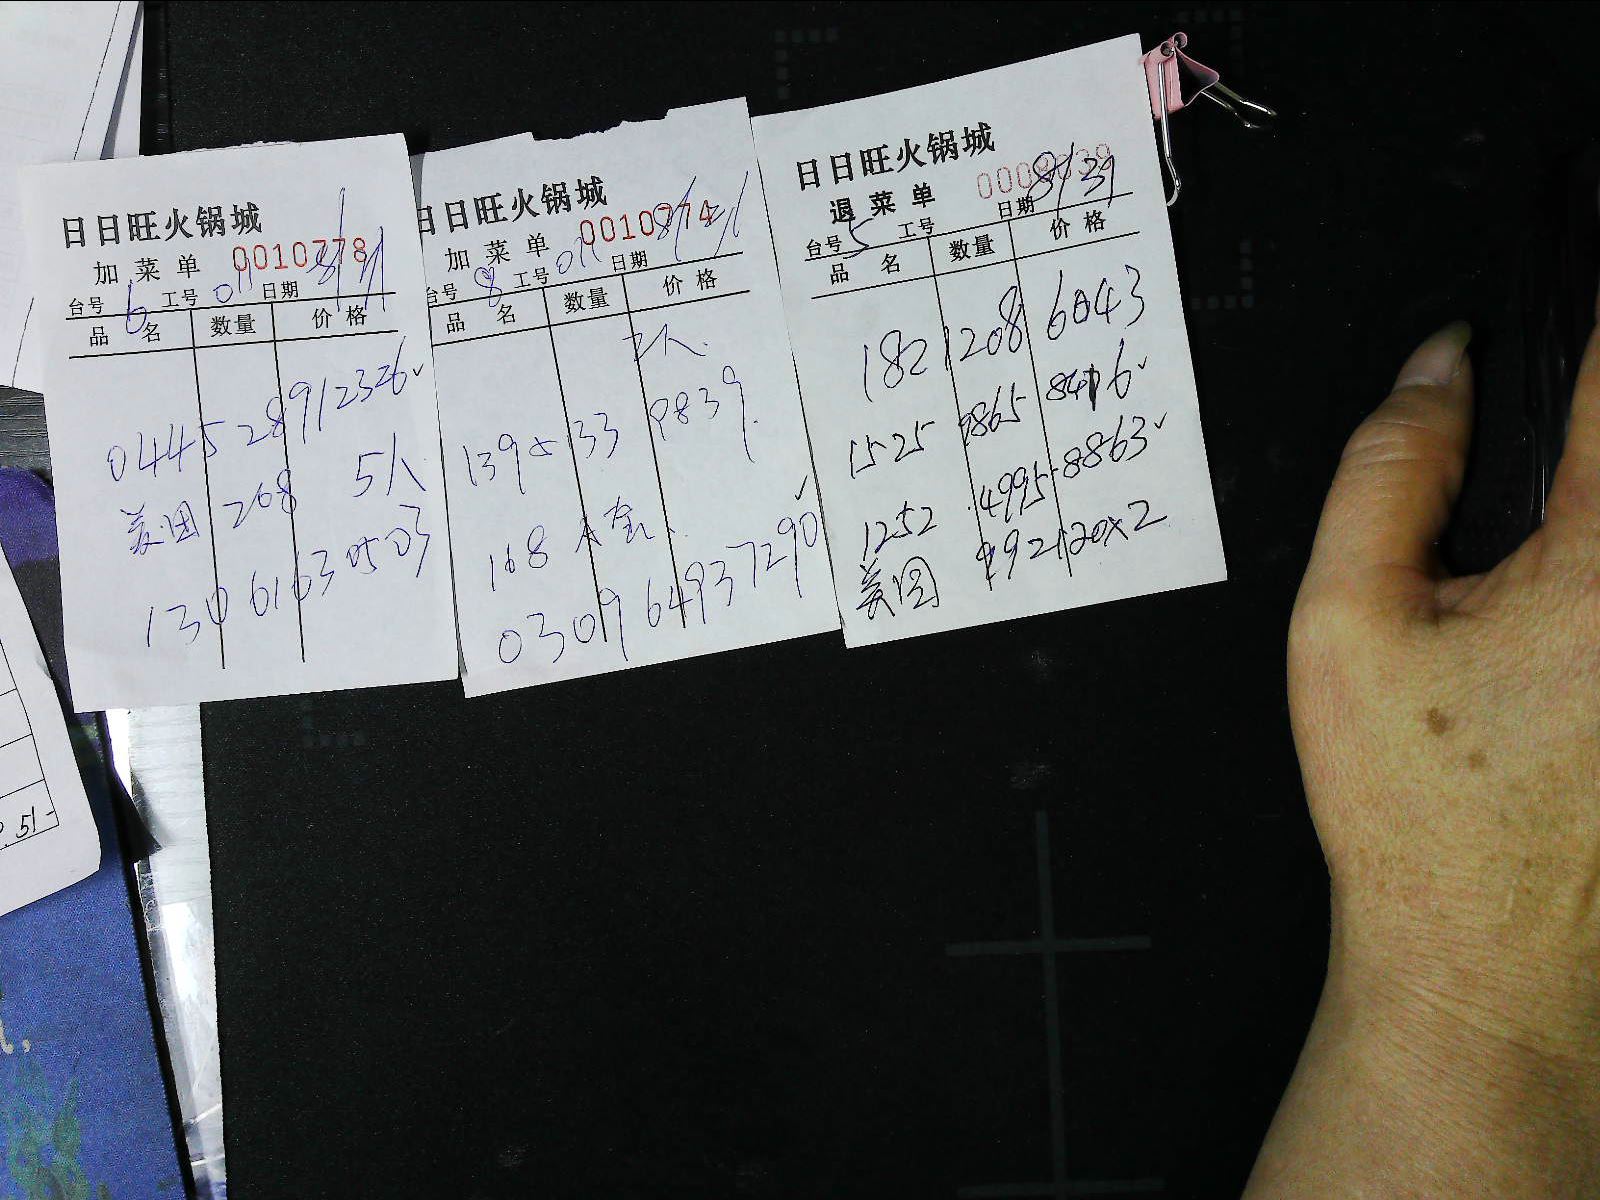 日日旺火锅城
加菜单 0010778
台号 6 工号 011 日期
品名 数量 价格
0445 28912326 ✓
美团 268 5人
130 6163 0503
日日旺火锅城
加菜单 0010774
台号 8 工号 011 日期 8/21
品名 数量 价格
2人.
139 33 9839.
168 A套.
0309 6493 7290 ✓
日日旺火锅城
退菜单
台号 5 工号 日期 8/31
品名 数量 价格
182 1208 6043
1525 9865 8416 ✓
1252 4995 8863 ✓
美团 192 120×2
51-